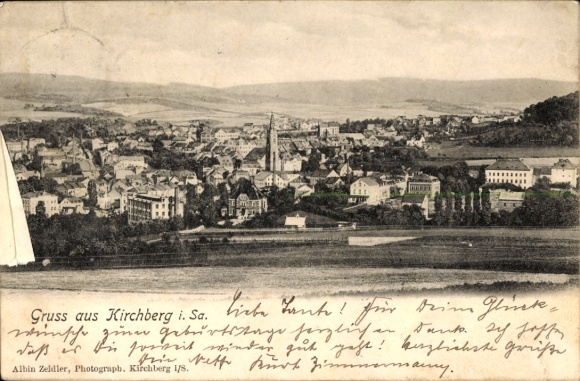 Gruss aus Kirchberg i. Sa.
Liebe Tante! Für Deine Glück-
wünsche zum Geburtstage herzlichen Dank. Ich hoffe,
daß es Dir soweit wieder gut geht! Herzlichste Grüße
Dein Neffe Kurt Zimmermann.
Albin Zeidler, Photograph. Kirchberg i/S.